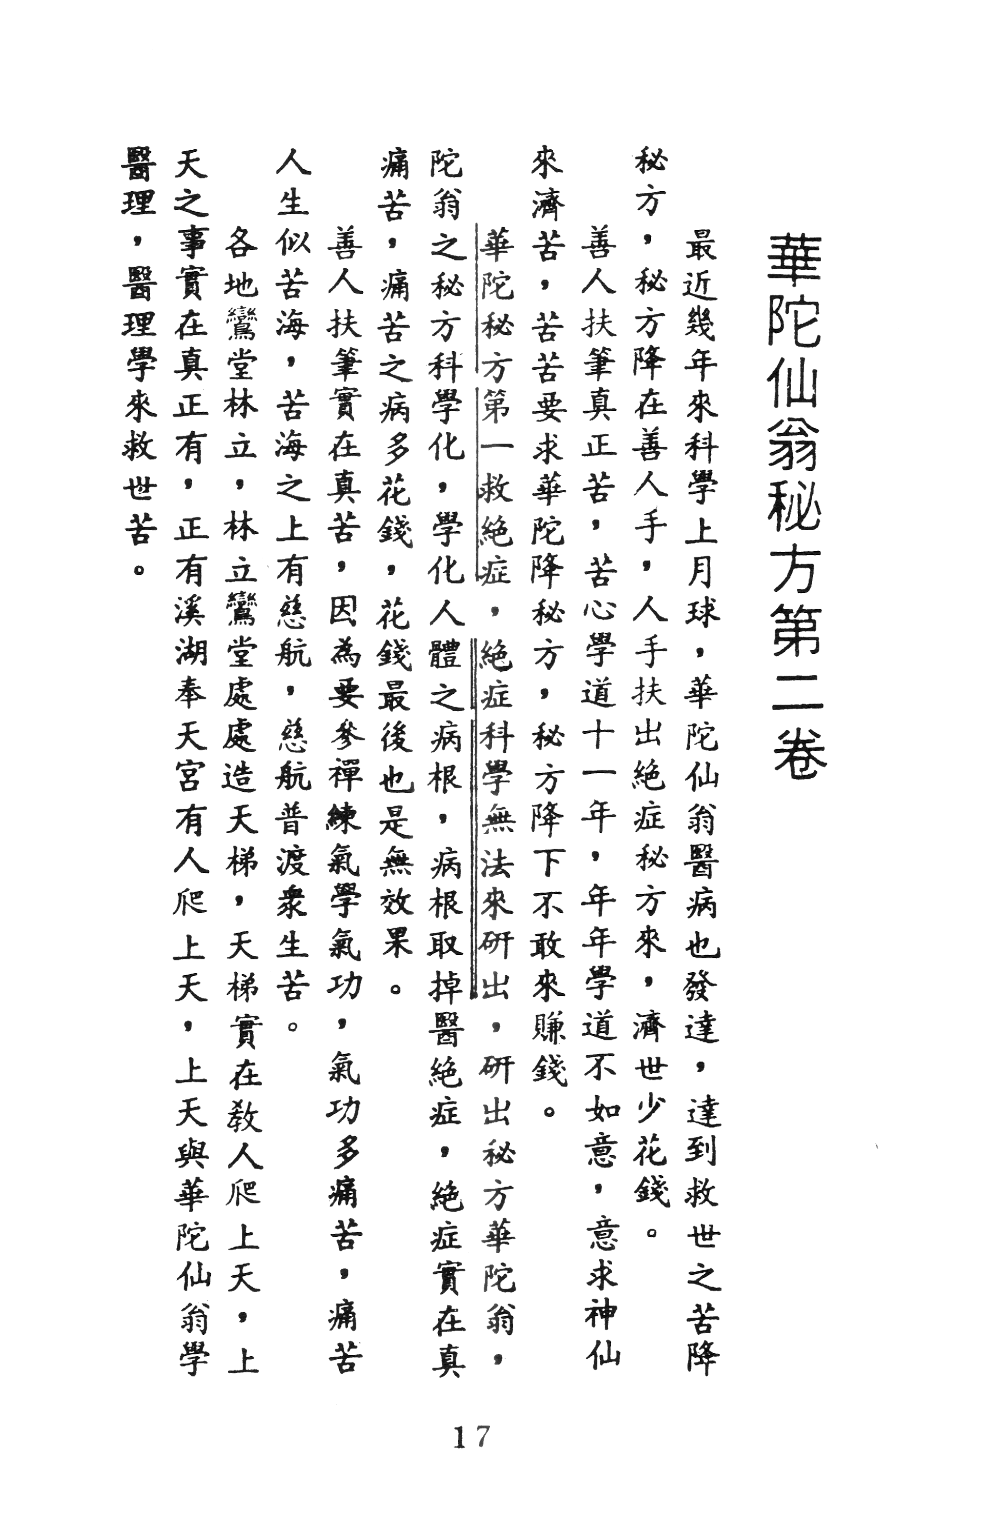 華陀仙翁秘方第二卷
最近幾年來科學上月球，華陀仙翁醫病也發達，達到救世之苦降
秘方，秘方降在善人手，人手扶出絕症秘方來，濟世少花錢。
善人扶筆真正苦，苦心學道十一年，年年學道不如意，意求神仙
來濟苦，苦苦要求華陀降秘方，秘方降下不敢來賺錢。
華陀秘方第一救絕症，絕症科學無法來研出，研出秘方華陀翁，
陀翁之秘方科學化，學化人體之病根，病根取掉醫絕症，絕症實在真
痛苦，痛苦之病多花錢，花錢最後也是無效果。
善人扶筆實在真苦，因為要參禪練氣學氣功，氣功多痛苦，痛苦
人生似苦海，苦海之上有慈航，慈航普渡眾生苦。
各地鸞堂林立，林立鸞堂處處造天梯，天梯實在教人爬上天，上
天之事實在真正有，正有溪湖奉天宮有人爬上天，上天與華陀仙翁學
醫理，醫理學來救世苦。
17